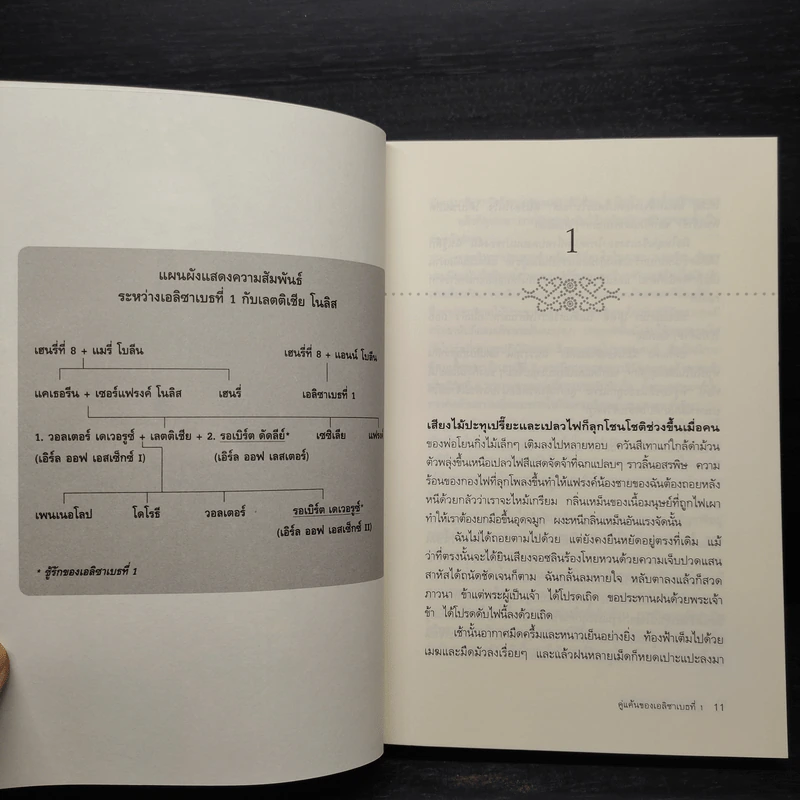 แผนผังแสดงความสัมพันธ์
ระหว่างเอลิซาเบธที่ 1 กับเลตติเซีย โนลิส
เฮนรี่ที่ 8 + แมรี่ โบลีน
เฮนรี่ที่ 8 + แอนน์ โบลีน
แคเธอรีน + เซอร์ฟรงค์ โนลิส
เฮนรี่
เอลิซาเบธที่ 1
1. วอลเตอร์ เดเวอรูซ์ + เลตติเซีย + 2. รอเบิร์ต ดัดลีย์*
เซซิเลีย
(เอิร์ล ออฟ เอสเซ็กซ์ I)
(เอิร์ล ออฟ เลสเตอร์)
เพนเนอโลป
โดโรธี
วอลเตอร์
รอเบิร์ต เดเวอรูซ์*
(เอิร์ล ออฟ เอสเซ็กซ์ II)
* ชู้รักของเอลิซาเบธที่ 1
1
เสียงไม้ปะทุเปรี๊ยะและเปลวไฟก็ลุกโชนโชติช่วงขึ้นเมื่อคน
ของพ่อโยนกิ่งไม้เล็กๆ เติมลงไปหลายหอบ ควันสีเทาแก่ใกล้ดำม้วน
ตัวพลุ่งขึ้นเหนือเปลวไฟสีแสดจัดจ้าที่ฉกแปลบๆ ราวลิ้นอสรพิษ ความ
ร้อนของกองไฟที่ลุกโพลงขึ้นทำให้แฟรงค์น้องชายของฉันต้องถอยหลัง
หนีด้วยกลัวว่าเราจะไหม้เกรียม กลิ่นเหม็นของเนื้อมนุษย์ที่ถูกไฟเผา
ทำให้เราต้องยกมือขึ้นอุดจมูก ผงะหนีกลิ่นเหม็นอันแรงจัดนั้น
ฉันไม่ได้ถอยตามไปด้วย แต่ยังคงยืนหยัดอยู่ตรงที่เดิม แม้
ว่าที่ตรงนั้นจะได้ยินเสียงจอซลินร้องโหยหวนด้วยความเจ็บปวดแสน
สาหัสได้ถนัดชัดเจนก็ตาม ฉันกลั้นลมหายใจ หลับตาลงแล้วก็สวด
ภาวนา ข้าแต่พระผู้เป็นเจ้า ได้โปรดเถิด ขอประทานฝนด้วยพระเจ้า
ข้า ได้โปรดดับไฟนี้ลงด้วยเถิด
เช้านั้นอากาศมืดครึ้มและหนาวเย็นอย่างยิ่ง ท้องฟ้าเต็มไปด้วย
เมฆและมืดมัวลงเรื่อยๆ และแล้วฝนหลายเม็ดก็หยดเปาะแปะลงมา
คู่แค้นของเอลิซาเบธที่ 1 11